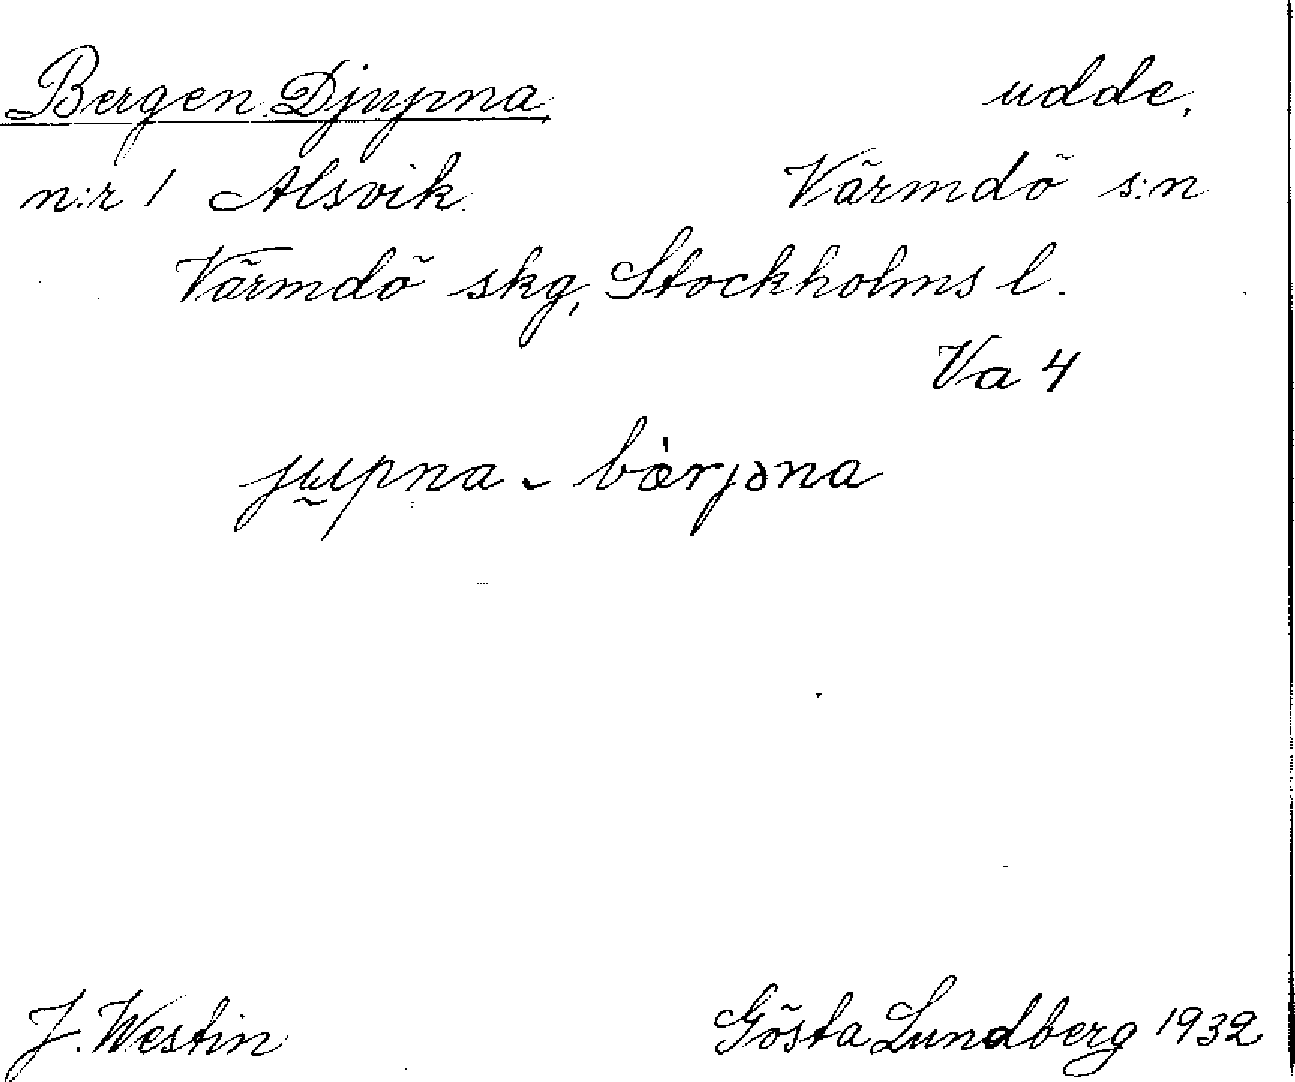 Bergen, Djupna udde,
n:r 1 Alsvik. Värmdö s:n
Värmdö skg, Stockholms l.
Va 4
jųpna - bæ̀rjəna
J. Westin Gösta Lundberg 1932